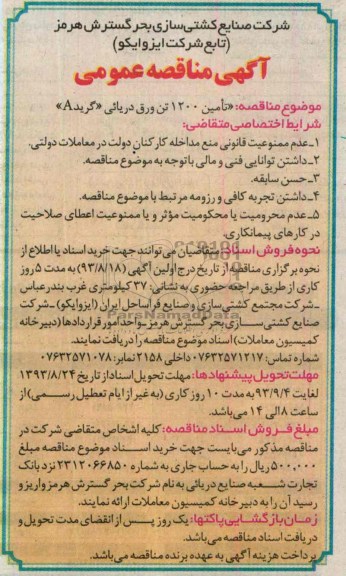 شرکت صنایع کشتی سازی بحر گسترش هرمز
(تابع شرکت ایزوایکو)
آگهی مناقصه عمومی
موضوع مناقصه: «تأمین ۱۲۰۰ تن ورق دریائی «گرید A»
شرایط اختصاصی متقاضی:
۱ـ عدم ممنوعیت قانونی منع مداخله کارکنان دولت در معاملات دولتی.
۲ـ داشتن توانایی فنی و مالی با توجه به موضوع مناقصه.
۳ـ حسن سابقه.
۴ـ داشتن تجربه کافی و رزومه مرتبط با موضوع مناقصه.
۵ـ عدم محرومیت یا محکومیت مؤثر و یا ممنوعیت اعطای صلاحیت
در کارهای پیمانکاری.
نحوه فروش اسناد: متقاضیان می توانند جهت خرید اسناد یا اطلاع از
نحوه برگزاری مناقصه از تاریخ درج اولین آگهی (۹۳/۸/۱۸) به مدت ۵ روز
کاری از طریق مراجعه حضوری به نشانی: ۳۷ کیلومتری غرب بندرعباس
ـ شرکت مجتمع کشتی سازی و صنایع فراساحل ایران (ایزوایکو) ـ شرکت
صنایع کشتی سازی بحر گسترش هرمز ـ واحد امور قراردادها (دبیرخانه
کمیسیون معاملات) اسناد موضوع مناقصه را دریافت نمایند.
شماره تماس: ۰۷۶۳۲۵۷۱۲۱۷ داخلی ۲۱۵۸ نمابر: ۰۷۶۳۲۵۷۱۰۷۸
مهلت تحویل پیشنهادها: مهلت تحویل اسناد از تاریخ ۱۳۹۳/۸/۲۴
لغایت ۹۳/۹/۴ به مدت ۱۰ روز کاری (به غیر از ایام تعطیل رسمی) از
ساعت ۸ الی ۱۴ می باشد.
مبلغ فروش اسناد مناقصه: کلیه اشخاص متقاضی شرکت در
مناقصه مذکور می بایست جهت خرید اسناد موضوع مناقصه مبلغ
۵۰۰,۰۰۰ ریال را به حساب جاری به شماره ۲۳۱۲۰۶۶۸۵۰ نزد بانک
تجارت شعبه صنایع دریائی به نام شرکت بحر گسترش هرمز واریز و
رسید آن را به دبیرخانه کمیسیون معاملات ارائه نمایند.
زمان بازگشایی پاکتها: یک روز پس از انقضای مدت تحویل و
دریافت اسناد مناقصه می باشد.
پرداخت هزینه آگهی به عهده برنده مناقصه می باشد.
ParsNamadData